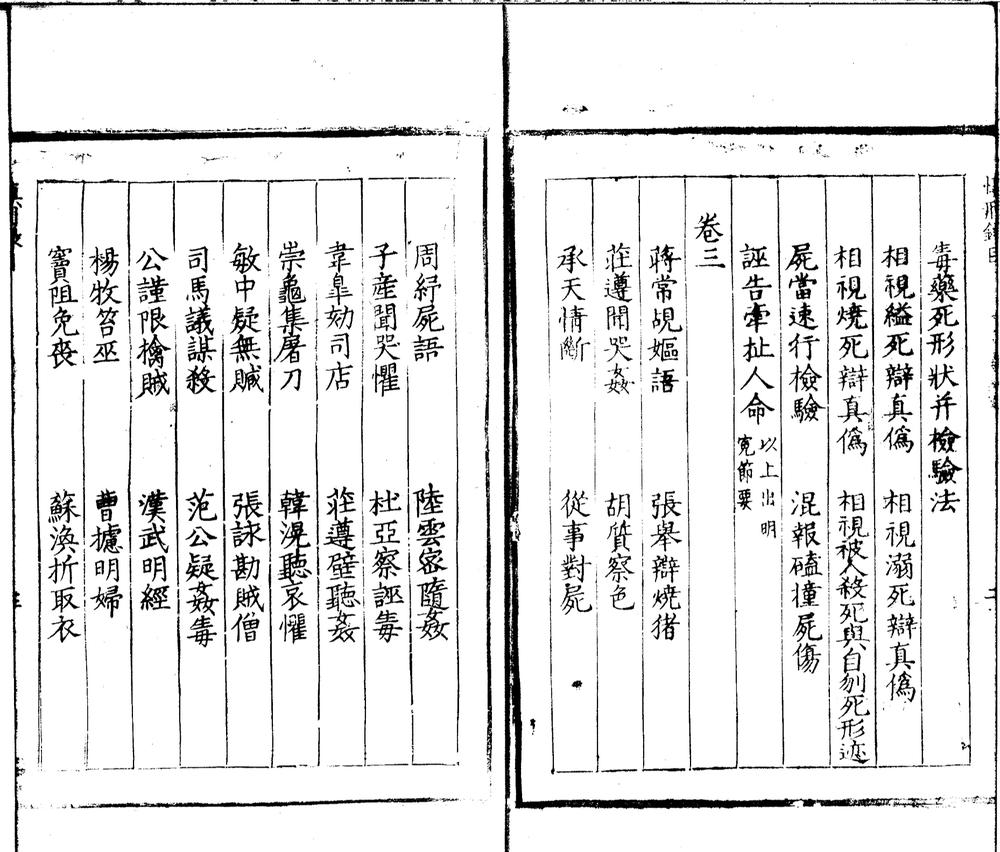 毒藥死形狀并檢驗法
相視縊死辯真僞　相視溺死辯真僞
相視燒死辯真僞　相視被人殺死與自刎死形迹
屍當速行檢驗　混報磕撞屍傷
誣告牽扯人命 以上出明
寃節要
卷三
蔣常覘嫗語　張舉辯燒猪
莊遵聞哭姦　胡質察色
承天情斷　從事對屍
周紆屍語　陸雲密隨姦
子産聞哭懼　杜亞察誣毒
韋臯劾司店　莊遵壁聽姦
崇龜集屠刀　韓滉聽哀懼
敏中疑無贓　張詠勘賊僧
司馬議謀殺　范公疑姦毒
公謹限擒賊　漢武明經
楊牧笞巫　曹攄明婦
竇阻免喪　蘇渙折取衣